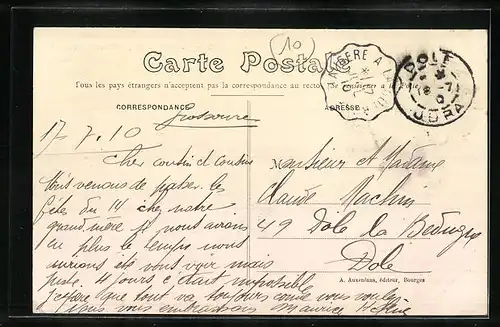 (10)
Carte Postale
Tous les pays étrangers n'acceptent pas la correspondance au recto
CORRESPONDANCE
ADRESSE
DOLE
JURA
17-7.10
Cher cousin et cousine
Nous venons de passer les
fêtes du 14 chez notre
grand mère si nous avions
eu plus le temps nous
aurions été vous voir mais
juste 4 jours c'était impossible
J'espère que tout va toujours comme vous voulez
vous embrassons Maurice
Monsieur et Madame
Claude Machin
49 Dole la
Dole
A. Auxenfans, éditeur, Bourges